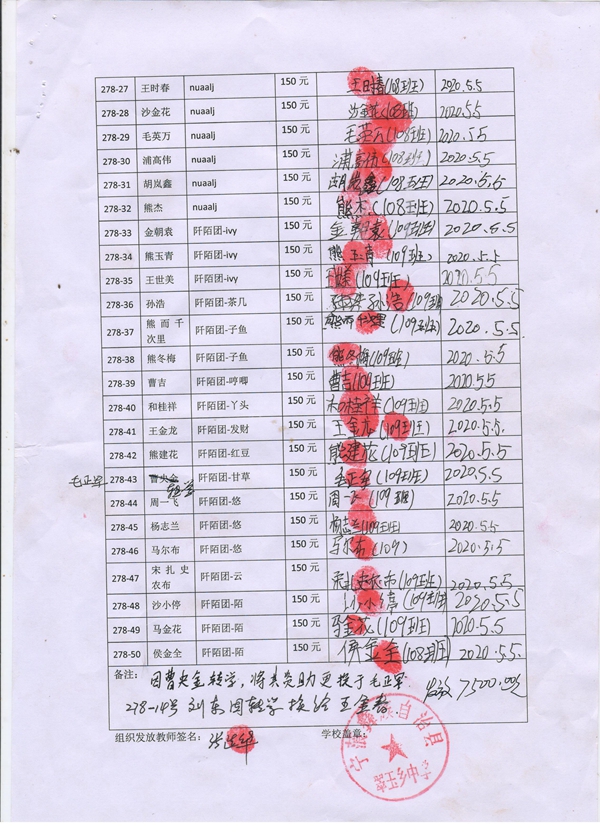 278-27 王时春 nuaalj 150 元 王时春(108班) 2020.5.5
278-28 沙金花 nuaalj 150 元 沙金花(108班) 2020.5.5
278-29 毛英万 nuaalj 150 元 毛英万(108班) 2020.5.5
278-30 浦高伟 nuaalj 150 元 浦高伟(108班) 2020.5.5
278-31 胡岚鑫 nuaalj 150 元 胡岚鑫(108班) 2020.5.5
278-32 熊杰 nuaalj 150 元 熊杰(108班) 2020.5.5
278-33 金朝袁 阡陌团-ivy 150 元 (109班) 2020.5.5
278-34 熊玉青 阡陌团-ivy 150 元 熊玉青(109班) 2020.5.5
278-35 王世美 阡陌团-ivy 150 元 (109班) 2020.5.5
278-36 孙浩 阡陌团-茶几 150 元 孙浩(109班) 2020.5.5
278-37 熊而千次里 阡陌团-子鱼 150 元 (109班) 2020.5.5
278-38 熊冬梅 阡陌团-子鱼 150 元 熊冬梅(109班) 2020.5.5
278-39 曹吉 阡陌团-哼唧 150 元 曹吉(109班) 2020.5.5
278-40 和桂祥 阡陌团-丫头 150 元 和桂祥(109班) 2020.5.5
278-41 王金龙 阡陌团-发财 150 元 王金龙(109班) 2020.5.5.
278-42 熊建花 阡陌团-红豆 150 元 熊建花(109班) 2020.5.5
毛正军 278-43 曹央金 阡陌团-甘草 150 元 毛正军(109班) 2020.5.5
278-44 周一飞 阡陌团-悠 150 元 周一飞(109班) 2020.5.5
278-45 杨志兰 阡陌团-悠 150 元 杨志兰(109班) 2020.5.5
278-46 马尔布 阡陌团-悠 150 元 马尔布(109) 2020.5.5
278-47 宋扎史农布 阡陌团-云 150 元 宋扎史农布(109班) 2020.5.5
278-48 沙小停 阡陌团-陌 150 元 沙小停(109班) 2020.5.5
278-49 马金花 阡陌团-陌 150 元 马金花(109班) 2020.5.5
278-50 侯金全 阡陌团-陌 150 元 侯金全(108班) 2020.5.5
备注: 因曹央金转学,将其资助更换于毛正军 发放7500.00元
278-14号 刘东国转学换给王金春
组织发放教师签名: 学校盖章:
自治县